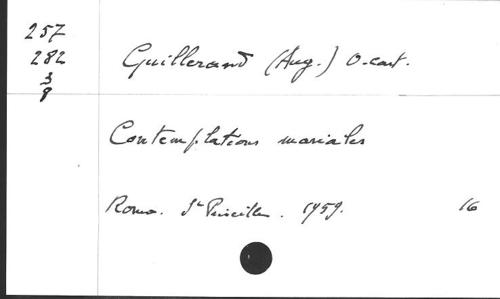 257
282
3
8
Guillerand (Aug.) O. cart.
Contemplations mariales
Roma. Ste Priscilla. 1959. 16